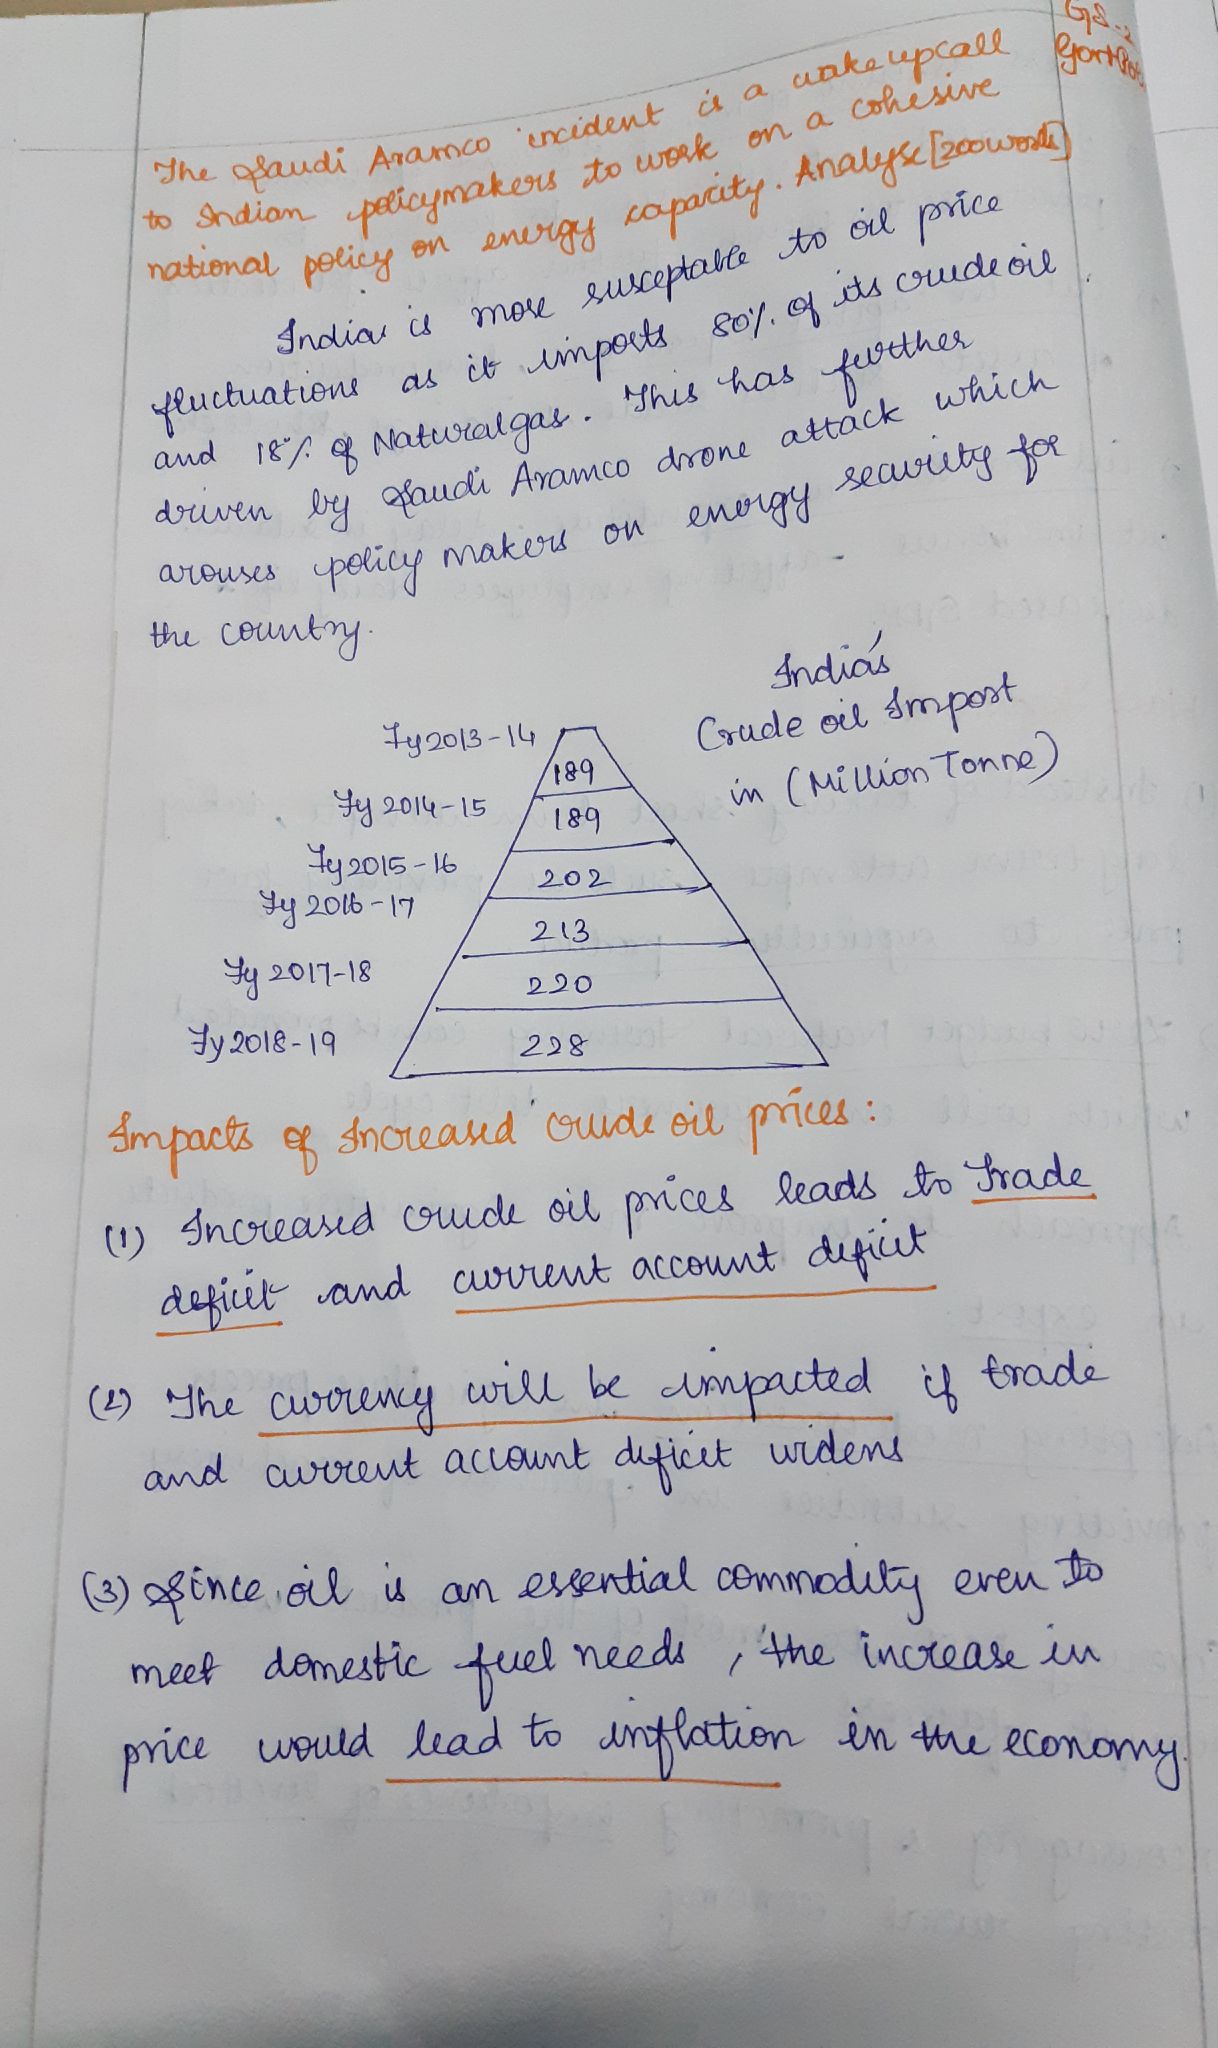 GS-2
The Saudi Aramco incident is a wakeup call
to Indian policymakers to work on a cohesive
national policy on energy capacity. Analyse [200 words]
India is more susceptable to oil price
fluctuations as it imports 80%. of its crude oil
and 18%. of Natural gas. This has further
driven by Saudi Aramco drone attack which
arouses policy makers on energy security for
the country.
India's
Crude oil Import
in (Million Tonne)
Fy 2013-14 189
Fy 2014-15 189
Fy 2015-16 202
Fy 2016-17 213
Fy 2017-18 220
Fy 2018-19 228
Impacts of Increased crude oil prices:
(1) Increased crude oil prices leads to Trade
deficit and current account deficit
(2) The currency will be impacted if trade
and current account deficit widens
(3) Since oil is an essential commodity even to
meet domestic fuel needs, the increase in
price would lead to inflation in the economy.